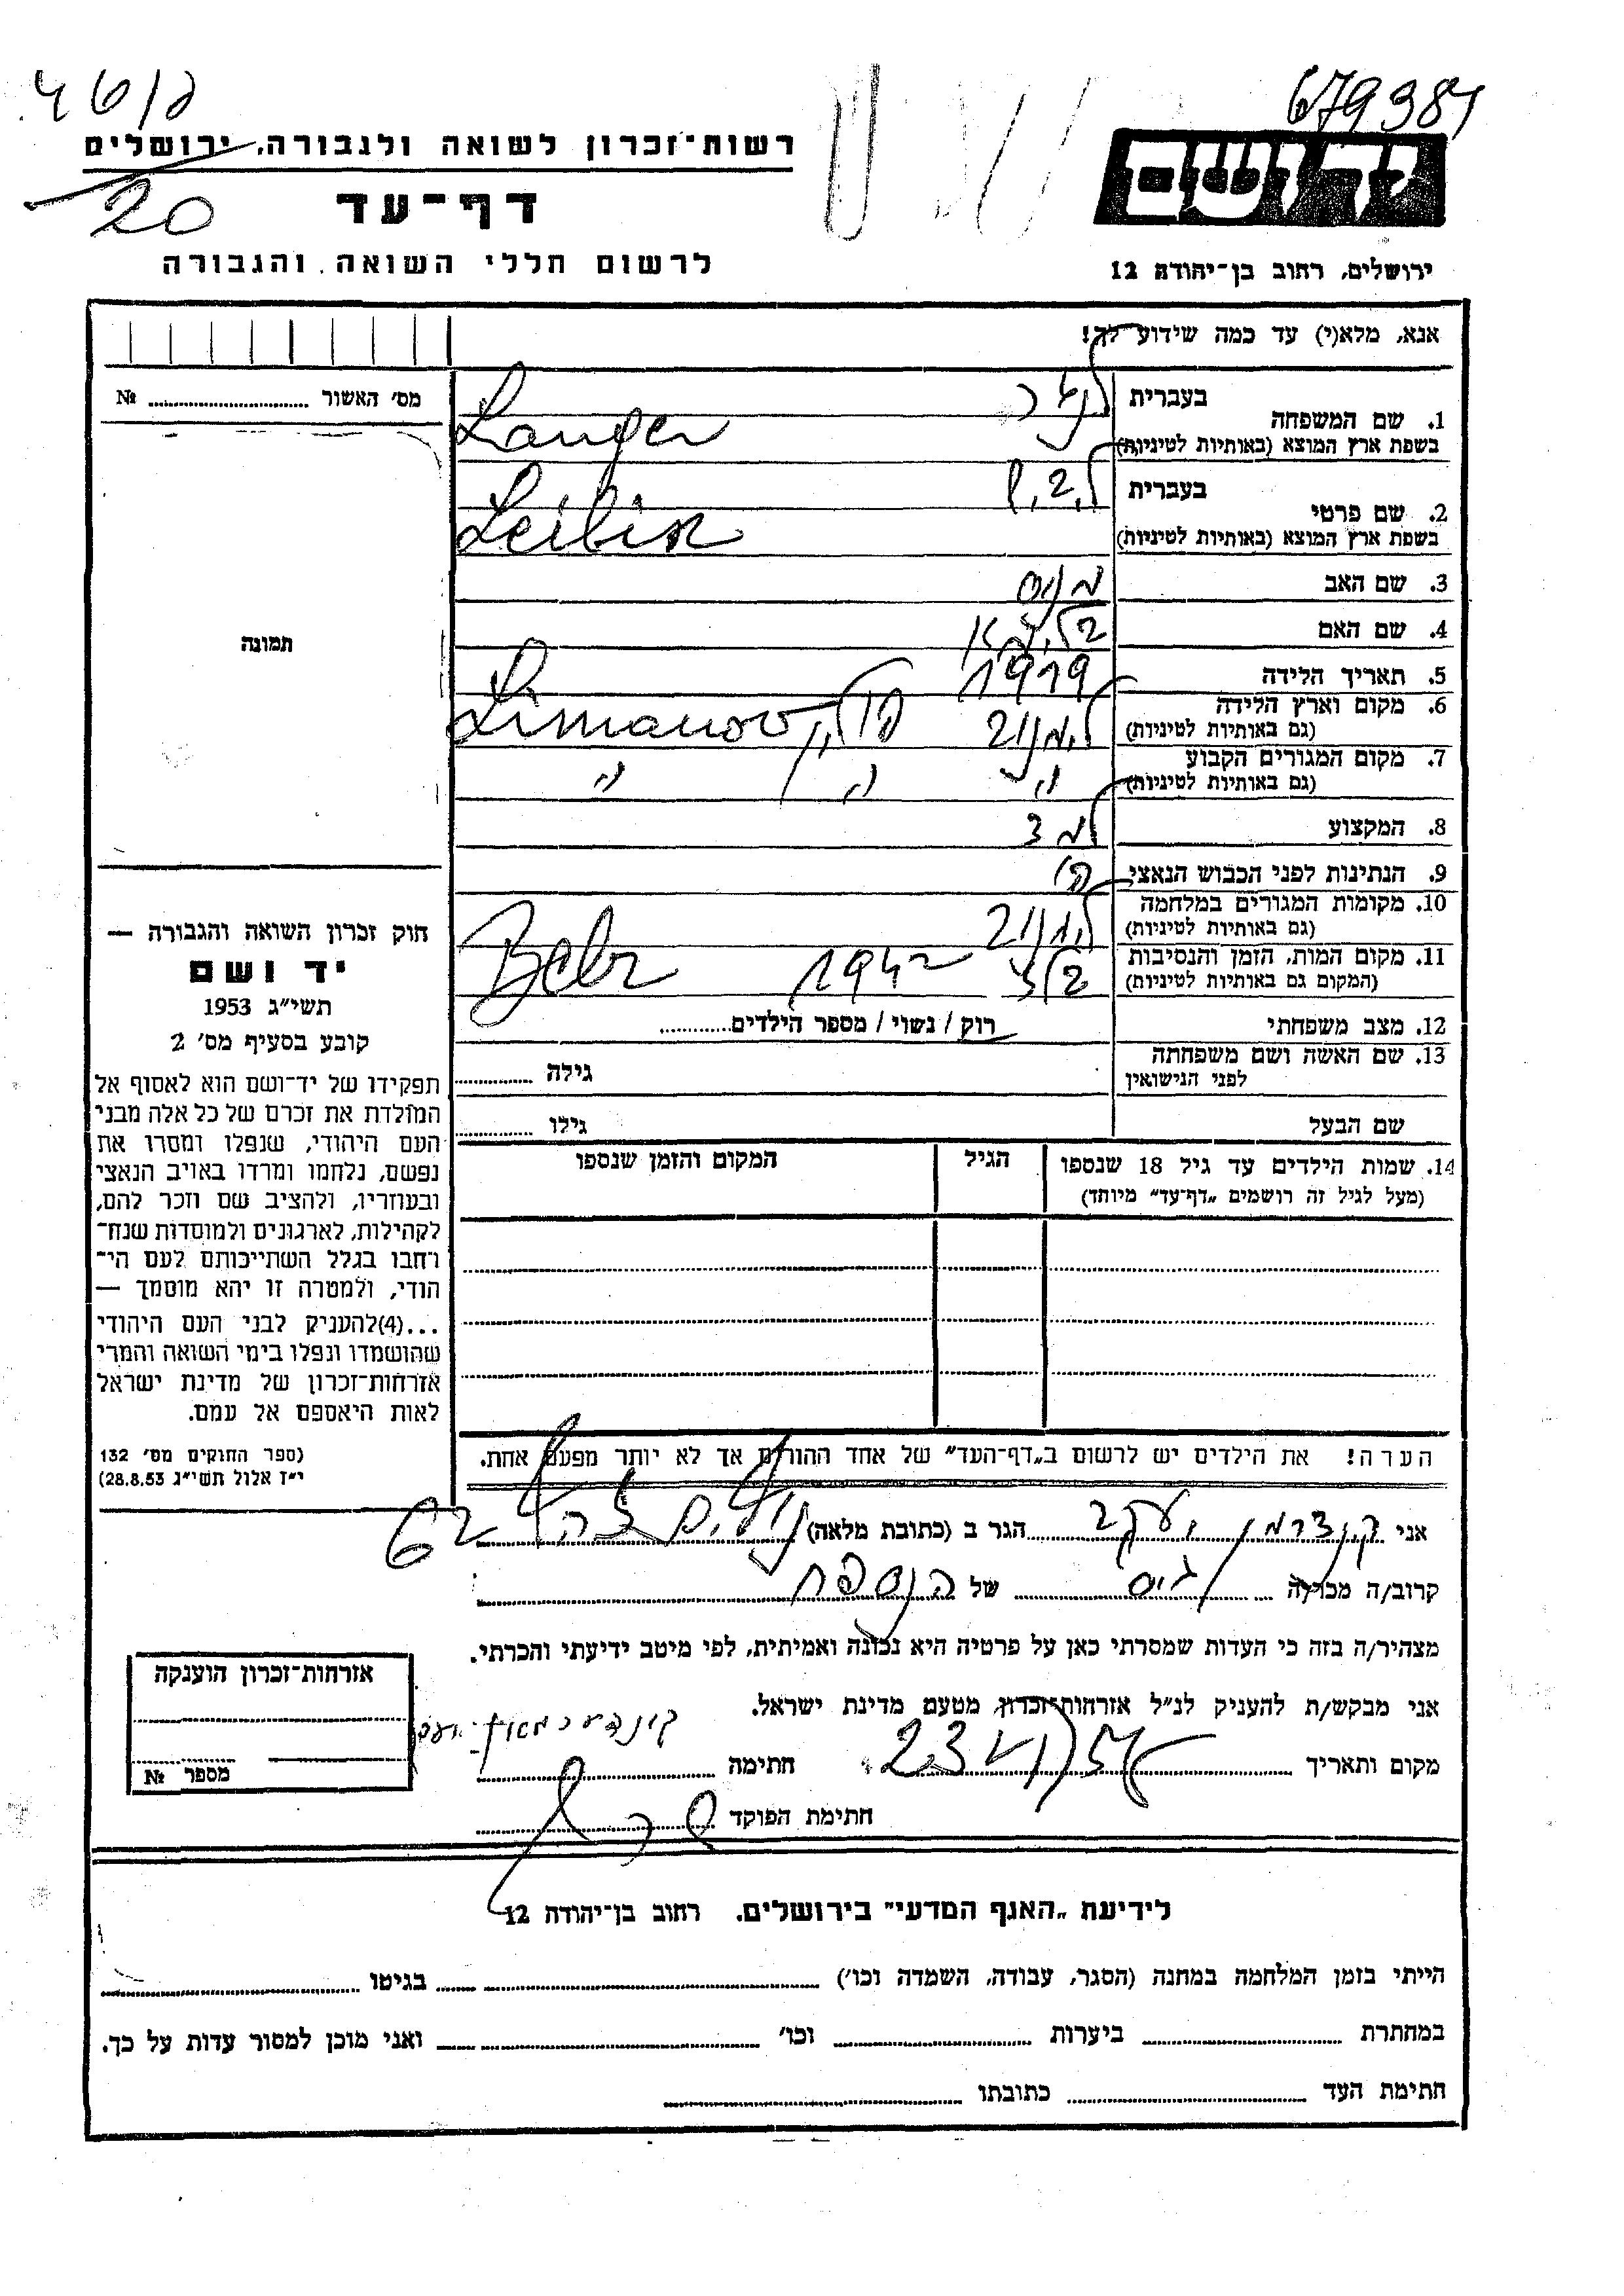 4618
679384
רשות־זכרון לשואה ולגבורה, ירושלים
20
דף־עד
לרשום חללי השואה והגבורה
יד ושם
ירושלים, רחוב בן־יהודה 12
אנא, מלא(י) עד כמה שידוע לך!
מס׳ האשור № 
תמונה
1. שם המשפחה בעברית לנגר
בשפת ארץ המוצא (באותיות לטיניות) Langer
2. שם פרטי בעברית
בשפת ארץ המוצא (באותיות לטיניות) Leibisz
3. שם האב מנוס
4. שם האם
5. תאריך הלידה 1919
6. מקום וארץ הלידה לימנוב פולין Limanov
(גם באותיות לטיניות)
7. מקום המגורים הקבוע " " "
(גם באותיות לטיניות)
8. המקצוע
9. הנתינות לפני הכבוש הנאצי פו׳
10. מקומות המגורים במלחמה
(גם באותיות לטיניות)
11. מקום המות, הזמן והנסיבות בלז 1942 Belz
(המקום גם באותיות לטיניות)
12. מצב משפחתי רוק / נשוי / מספר הילדים
13. שם האשה ושם משפחתה גילה
לפני הנישואין
שם הבעל גילו
14. שמות הילדים עד גיל 18 שנספו הגיל המקום והזמן שנספו
(מעל לגיל זה רושמים „דף־עד״ מיוחד)
חוק זכרון השואה והגבורה —
יד ושם
תשי״ג 1953
קובע בסעיף מס׳ 2
תפקידו של יד־ושם הוא לאסוף אל
המולדת את זכרם של כל אלה מבני
העם היהודי, שנפלו ומסרו את
נפשם, נלחמו ומרדו באויב הנאצי
ובעוזריו, ולהציב שם וזכר להם,
לקהילות, לארגונים ולמוסדות שנח־
רבו בגלל השתייכותם לעם הי־
הודי, ולמטרה זו יהא מוסמך —
...(4)להעניק לבני העם היהודי
שהושמדו ונפלו בימי השואה והמרי
אזרחות־זכרון של מדינת ישראל
לאות היאספם אל עמם.
(ספר החוקים מס׳ 132
י״ז אלול תשי״ג 28.8.53)
הערה! את הילדים יש לרשום ב„דף־העד״ של אחד ההורים אך לא יותר מפעם אחת.
אני קונדרמן יעקב הגר ב (כתובת מלאה) 62
קרוב/ה מכר/ה גיס של הנספה
מצהיר/ה בזה כי העדות שמסרתי כאן על פרטיה היא נכונה ואמיתית, לפי מיטב ידיעתי והכרתי.
אני מבקש/ת להעניק לנ״ל אזרחות־זכרון מטעם מדינת ישראל.
מקום ותאריך חתימה
חתימת הפוקד
אזרחות־זכרון הוענקה
מספר №
לידיעת „האגף המדעי״ בירושלים. רחוב בן־יהודה 12
הייתי בזמן המלחמה במחנה (הסגר, עבודה, השמדה וכו׳) בגיטו
במחתרת ביערות וכו׳ ואני מוכן למסור עדות על כך.
חתימת העד כתובתו